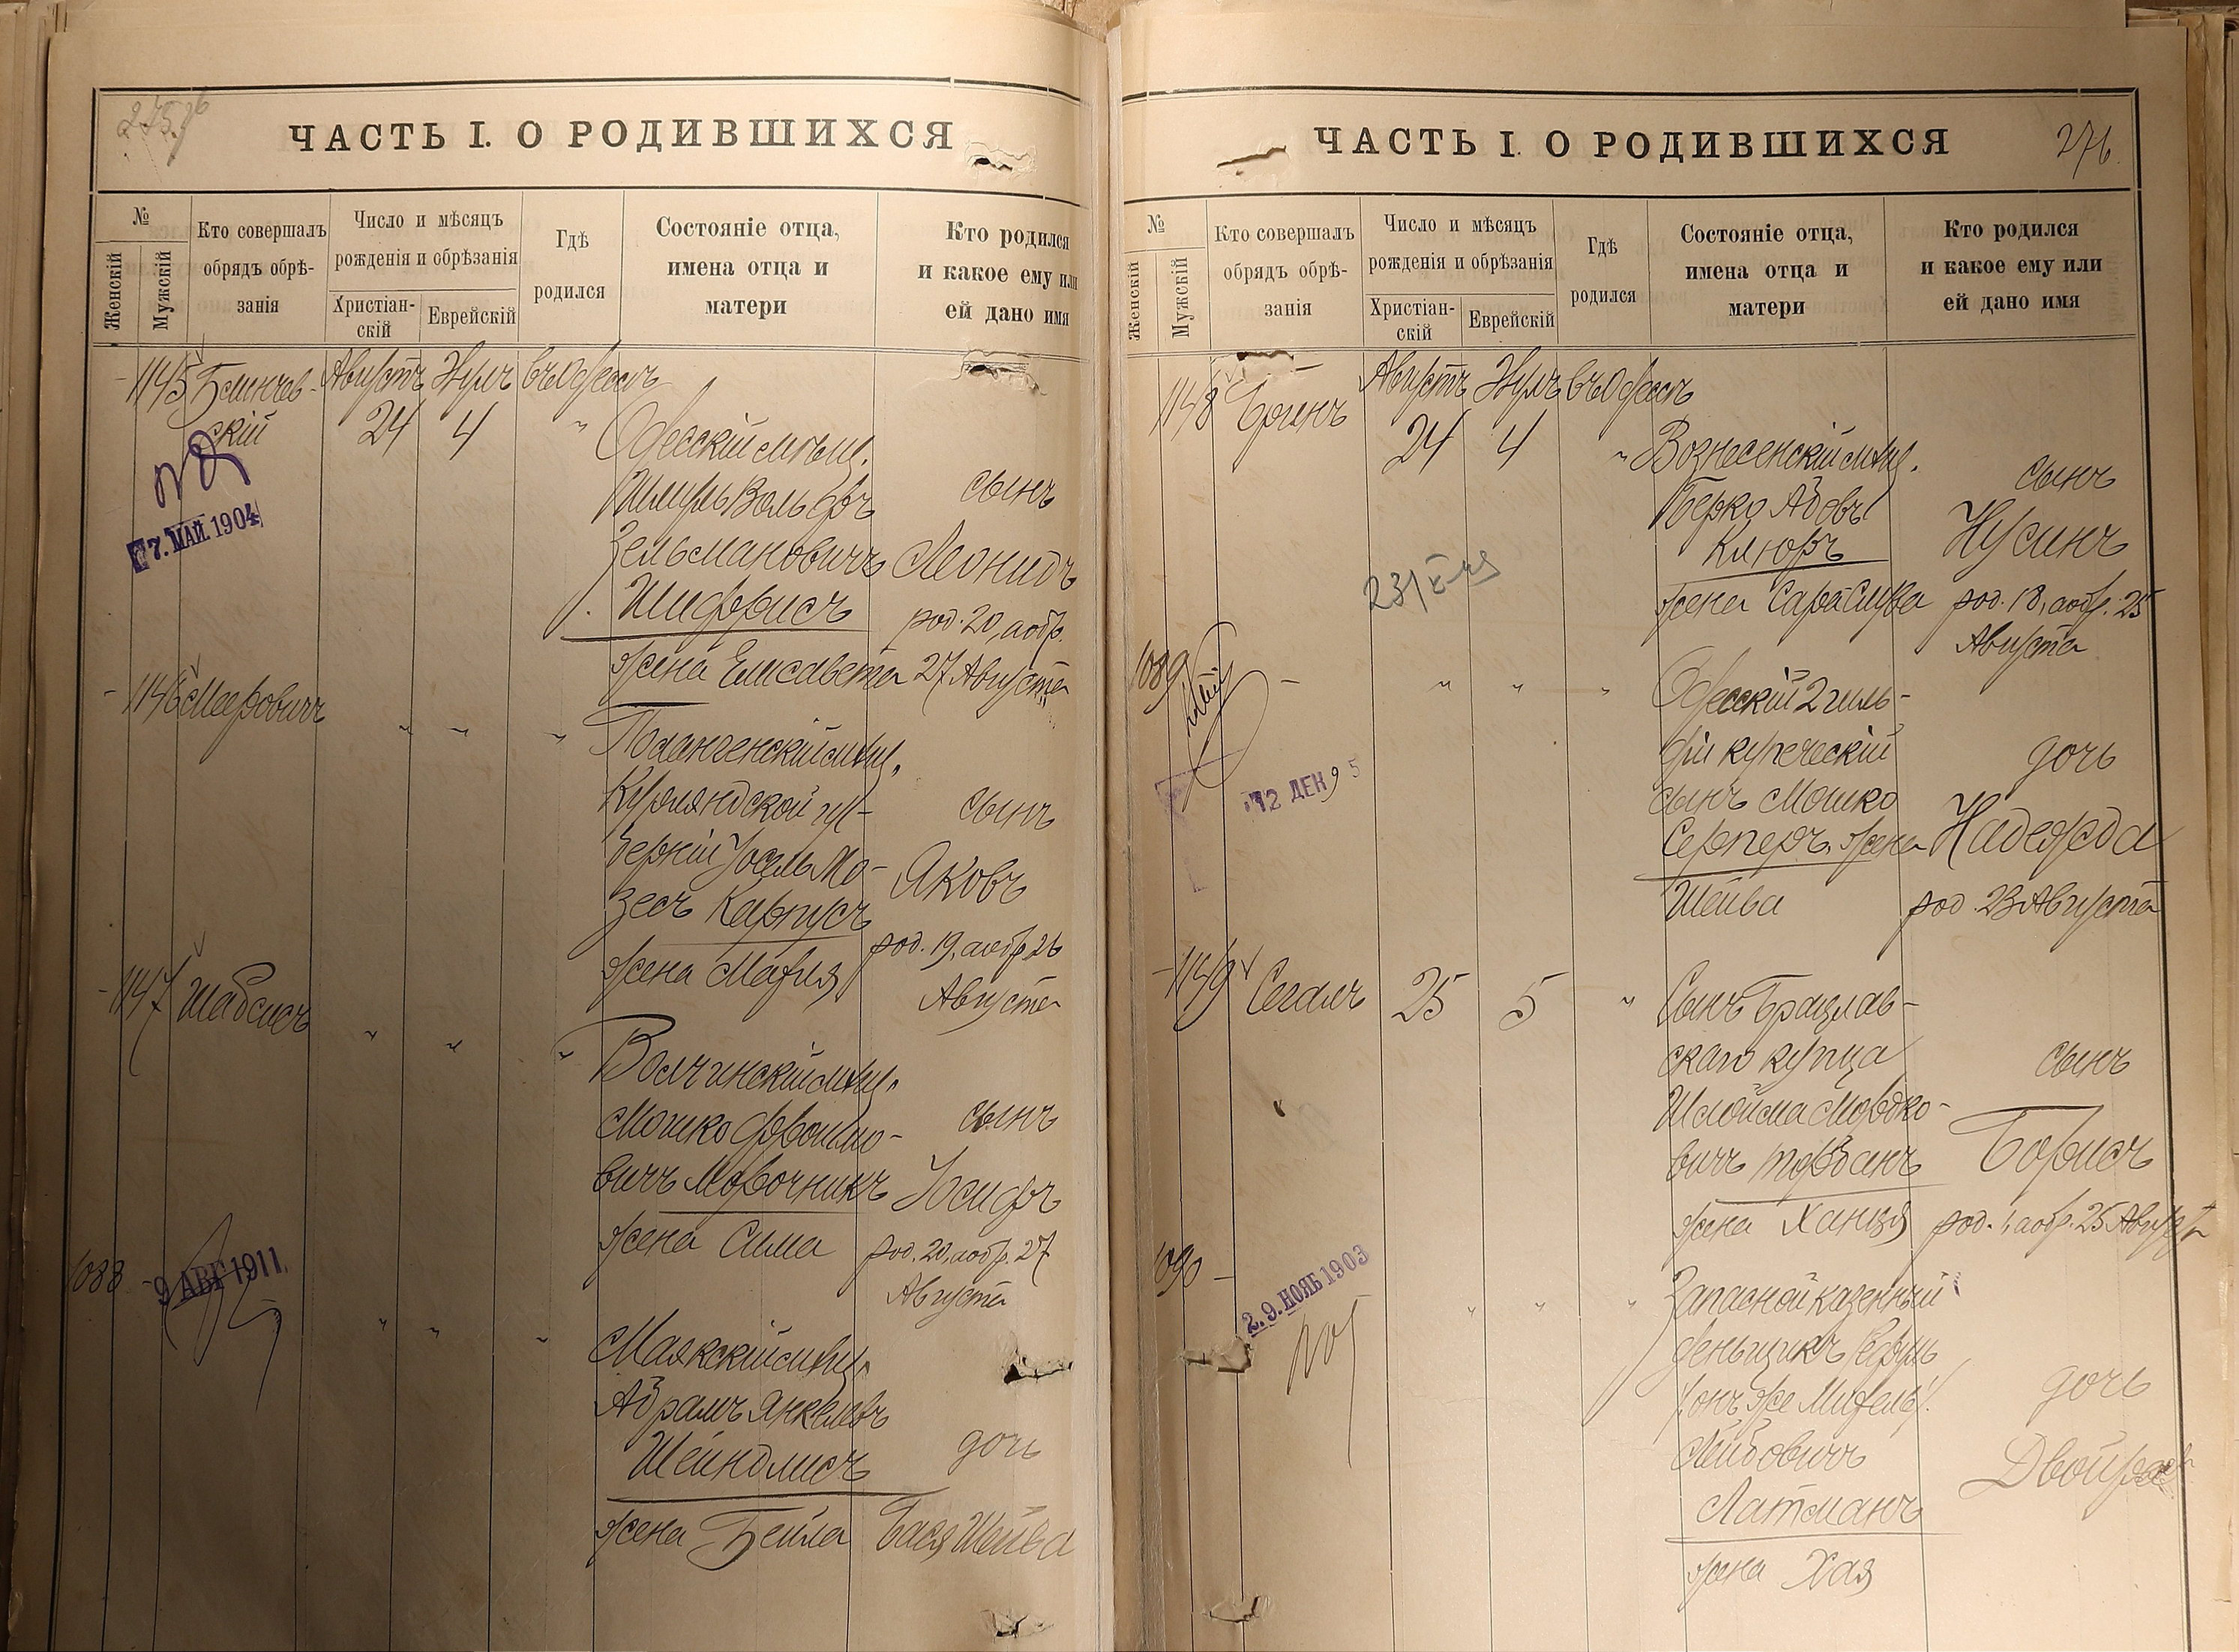 275.
ЧАСТЬ I. О РОДИВШИХСЯ
№
Женскій
Мужскій
Кто совершалъ
обрядъ обрѣ-
занія
Число и мѣсяцъ
рожденія и обрѣзанія
Христіан-
скій
Еврейскій
Гдѣ
родился
Состояніе отца,
имена отца и
матери
Кто родился
и какое ему или
ей дано имя
1145 Блинчев- Августъ Элулъ въ Одессѣ
скій 24 4 "
Одесскій мѣщ.
Шмуль Вольфъ
Зельмановичъ
Шифрисъ
жена Елисавета
сынъ
Леонидъ
род. 20, аобр.
27 Августа
7. МАЙ. 1904
1146 Мееровичъ " " "
Полангенскій мѣщ.
Курляндской гу-
берніи Іосель Мо-
зесъ Карпусъ
жена Марія
сынъ
Яковъ
род. 19, аобр. 26
Августа
1147 Шабсисъ " " "
Волчинскій мѣщ.
Мошко
вичъ
жена Сима
сынъ
Іосифъ
род. 20, аобр. 27
Августа
1088 -
9 АВГ 1911
" " "
Маякскій мѣщ.
Абрамъ Янкелевъ
Шейндлисъ
жена Бейла
дочь
Бася Шейва
276.
ЧАСТЬ I. О РОДИВШИХСЯ
№
Женскій
Мужскій
Кто совершалъ
обрядъ обрѣ-
занія
Число и мѣсяцъ
рожденія и обрѣзанія
Христіан-
скій
Еврейскій
Гдѣ
родился
Состояніе отца,
имена отца и
матери
Кто родился
и какое ему или
ей дано имя
1148 Августъ Элулъ въ Одессѣ
24 4 "
Вознесенскій мѣщ.
Берко
Клюръ
жена Сара Слува
сынъ
Нусинъ
род. 18, аобр. 25
Августа
1089 - " " "
Одесскій 2 гиль-
діи купеческій
сынъ Мошко
Серперъ, жена
Шейва
дочь
Надежда
род. 23 Августа
12 ДЕК 9 5
1149 Сегалъ 25 5 "
Сынъ Брацлав-
скаго купца
Шлойма Мордко-
вичъ Турбанъ
жена Ханця
сынъ
Борисъ
род. 1, аобр. 25 Августа
1090 -
2.9. НОЯБ 1903
" " "
Запасной казенный
деньщикъ
Лейбовичъ
Латманъ
жена Хая
дочь
Двойра